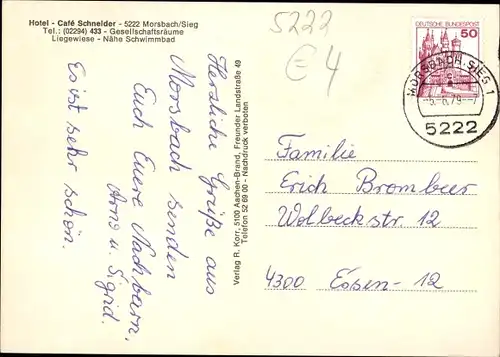 Hotel - Café Schneider - 5222 Morsbach/Sieg
Tel.: (02294) 433 - Gesellschaftsräume
Liegewiese - Nähe Schwimmbad
Herzliche Grüße aus
Morsbach senden
Euch Euere Nachbarn.
Arno u. Sigrid.
Es ist sehr schön.
Verlag R. Korr, 5100 Aachen-Brand, Freunder Landstraße 49
Telefon 52 69 00 - Nachdruck verboten
5222
€4
DEUTSCHE BUNDESPOST
50
MORSBACH, SIEG 1
5222
Familie
Erich Brombeer
Wolbeckstr. 12
4300 Essen-12